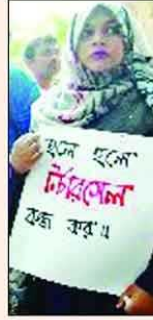 হলে হলে
টর্চারসেল
বন্ধ কর॥